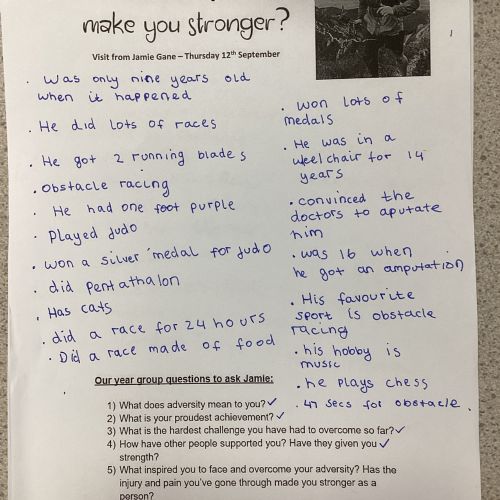 make you stronger?
Visit from Jamie Gane – Thursday 12th September
. Was only nine years old
when it happened
. He did lots of races
. He got 2 running blades
. obstacle racing
. He had one foot purple
. Played judo
. won a silver medal for judo
. did pentathalon
. Has cats
. did a race for 24 hours
. Did a race made of food
. won lots of
medals
. He was in a
weelchair for 14
years
. convinced the
doctors to aputate
him
. was 16 when
he got an amputation
. His favourite
sport is obstacle
racing
. his hobby is
music
. he plays chess
. 47 secs for obstacle.
Our year group questions to ask Jamie:
1) What does adversity mean to you? ✓
2) What is your proudest achievement? ✓
3) What is the hardest challenge you have had to overcome so far? ✓
4) How have other people supported you? Have they given you ✓
strength?
5) What inspired you to face and overcome your adversity? Has the
injury and pain you've gone through made you stronger as a
person?